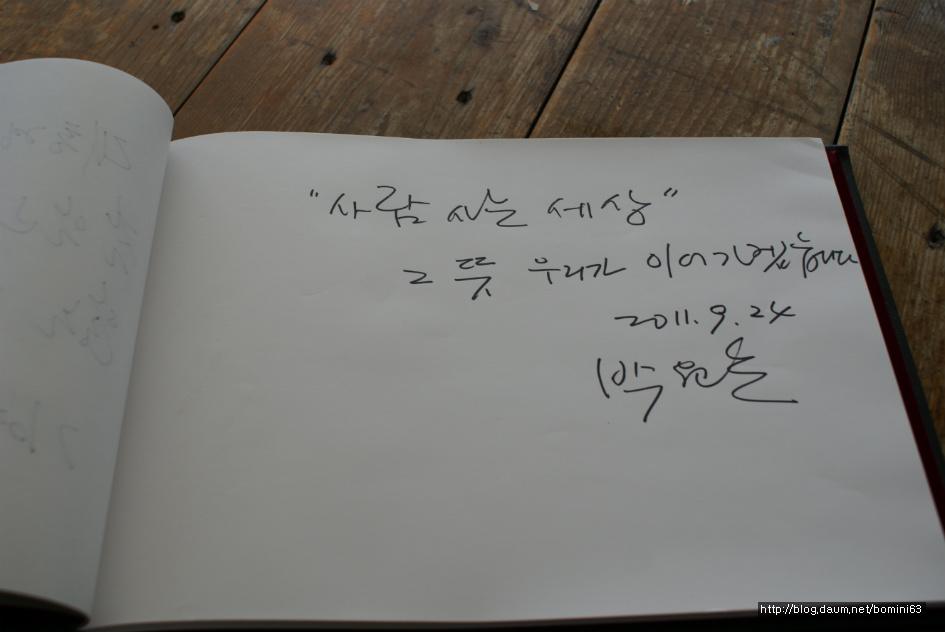 "사람 사는 세상"
그 뜻 우리가 이어가겠습니다
2011. 9. 24
박원순
http://blog.daum.net/bomini63